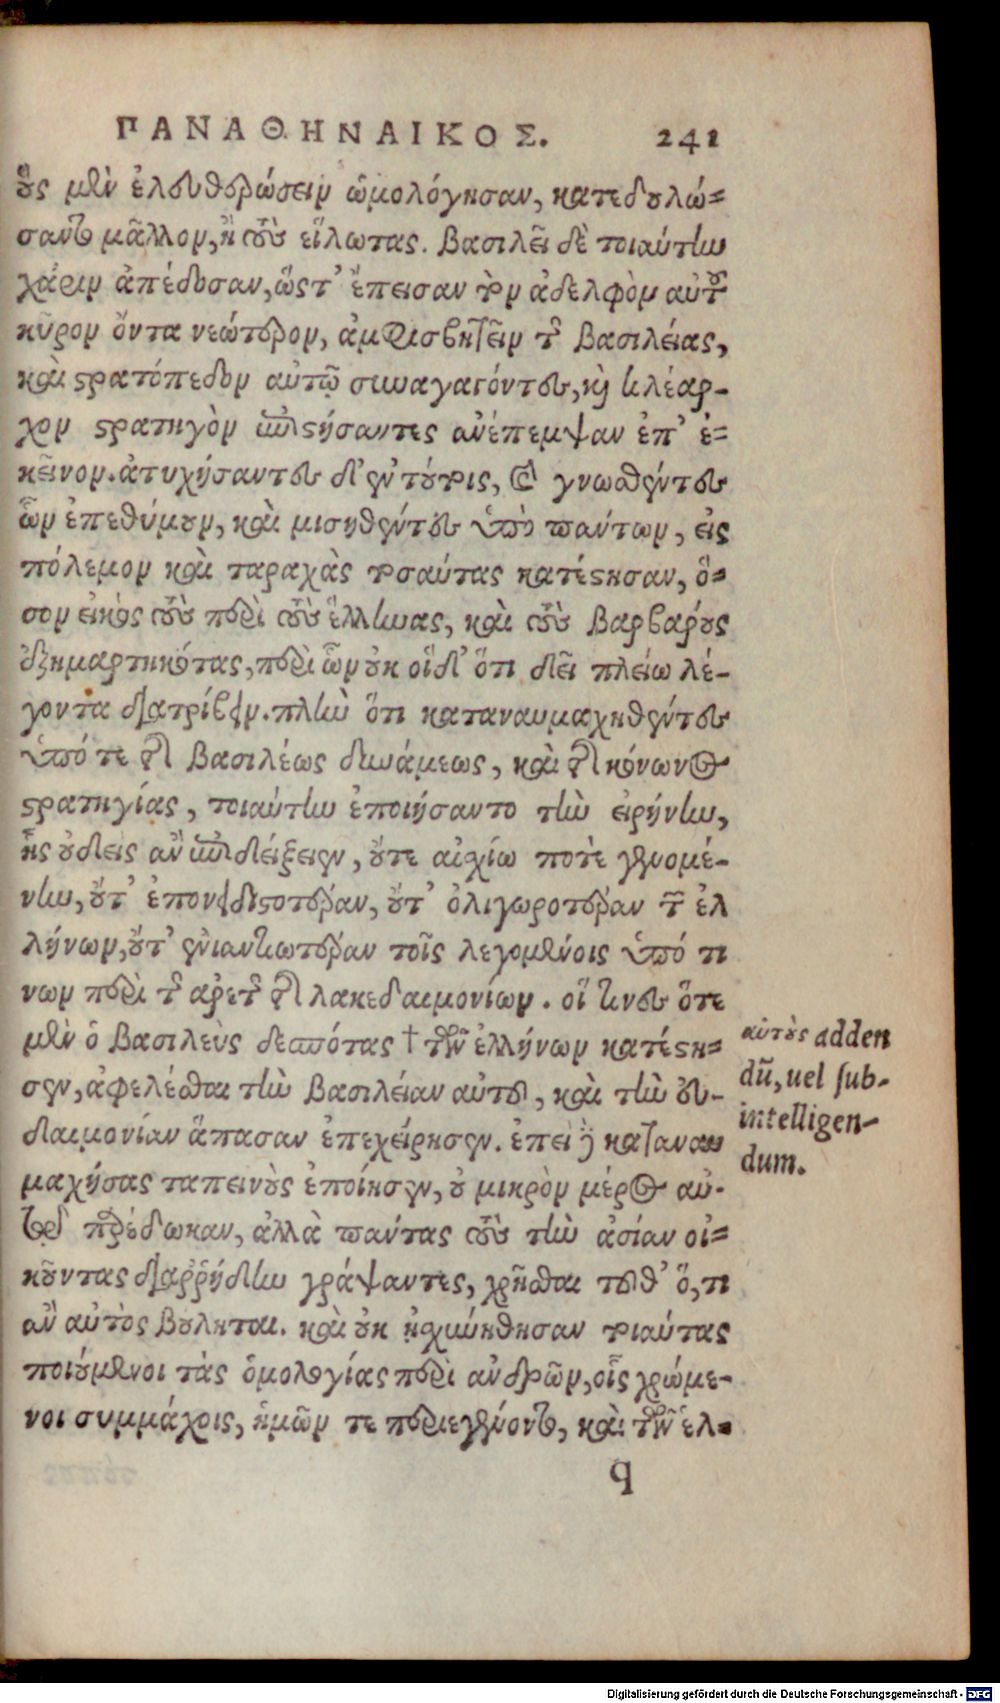 ΠΑΝΑΘΗΝΑΙΚΟΣ. 241
οὓς μὲν ἐλευθερώσειν ὡμολόγησαν, κατεδουλώ=
σαντο μᾶλλον, ἢ τοὺς εἵλωτας. βασιλεῖ δὲ τοιαύτην
χάριν ἀπέδοσαν, ὥστ' ἔπεισαν τὸν ἀδελφὸν αὐτοῦ
κῦρον ὄντα νεώτερον, ἀμφισβητεῖν τῆς βασιλείας,
καὶ στρατόπεδον αὐτῷ συναγαγόντες, καὶ κλέαρ-
χον στρατηγὸν ἐπιστήσαντες ἀνέπεμψαν ἐπ' ἐ=
κεῖνον. ἀτυχήσαντες δ' ἐν τούτοις, καὶ γνωσθέντες
ὧν ἐπεθύμουν, καὶ μισηθέντες ὑπὸ πάντων, εἰς
πόλεμον καὶ ταραχὰς τοσαύτας κατέστησαν, ὅ=
σον εἰκὸς τοὺς περὶ τοὺς ἕλληνας, καὶ τοὺς βαρβάρους
ἐξημαρτηκότας, περὶ ὧν οὐκ οἶδ' ὅτι δεῖ πλείω λέ-
γοντα διατρίβειν. πλὴν ὅτι καταναυμαχηθέντες
ὑπό τε τῆς βασιλέως δυνάμεως, καὶ τῆς κόνωνος
στρατηγίας, τοιαύτην ἐποιήσαντο τὴν εἰρήνην,
ἧς οὐδεὶς ἂν ἐπιδείξειεν, οὔτε αἰχίω ποτὲ γενομέ-
νην, οὔτ' ἐπονειδιστοτέραν, οὔτ' ὀλιγωροτέραν τῶν ἑλ
λήνων, οὔτ' ἐνιαντιωτέραν τοῖς λεγομένοις ὑπό τι
νων περὶ τῆς ἀρετῆς τῆς λακεδαιμονίων. οἵ τινες ὅτε
μὲν ὁ βασιλεὺς δεσπότας † τῶν ἑλλήνων κατέστη=
σεν, ἀφελέσθαι τὴν βασιλείαν αὐτοῦ, καὶ τὴν εὐ-
δαιμονίαν ἅπασαν ἐπεχείρησεν. ἐπεὶ δὲ καταναυ
μαχήσας ταπεινοὺς ἐποίησεν, οὐ μικρὸν μέρος αὐ-
τῷ παρέδωκαν, ἀλλὰ πάντας τοὺς τὴν ἀσίαν οἰ=
κοῦντας διαρρήδην γράψαντες, χρῆσθαι τοῦθ' ὅ, τι
ἂν αὐτὸς βούληται. καὶ οὐκ ᾐσχύνθησαν τοιαύτας
ποιούμενοι τὰς ὁμολογίας περὶ ἀνδρῶν, οἷς χρώμε-
νοι συμμάχοις, ἡμῶν τε περιεγένοντο, καὶ τῶν ἑλ=
q
αὐτοὺς adden
dū, uel sub-
intelligen-
dum.
Digitalisierung gefördert durch die Deutsche Forschungsgemeinschaft - DFG